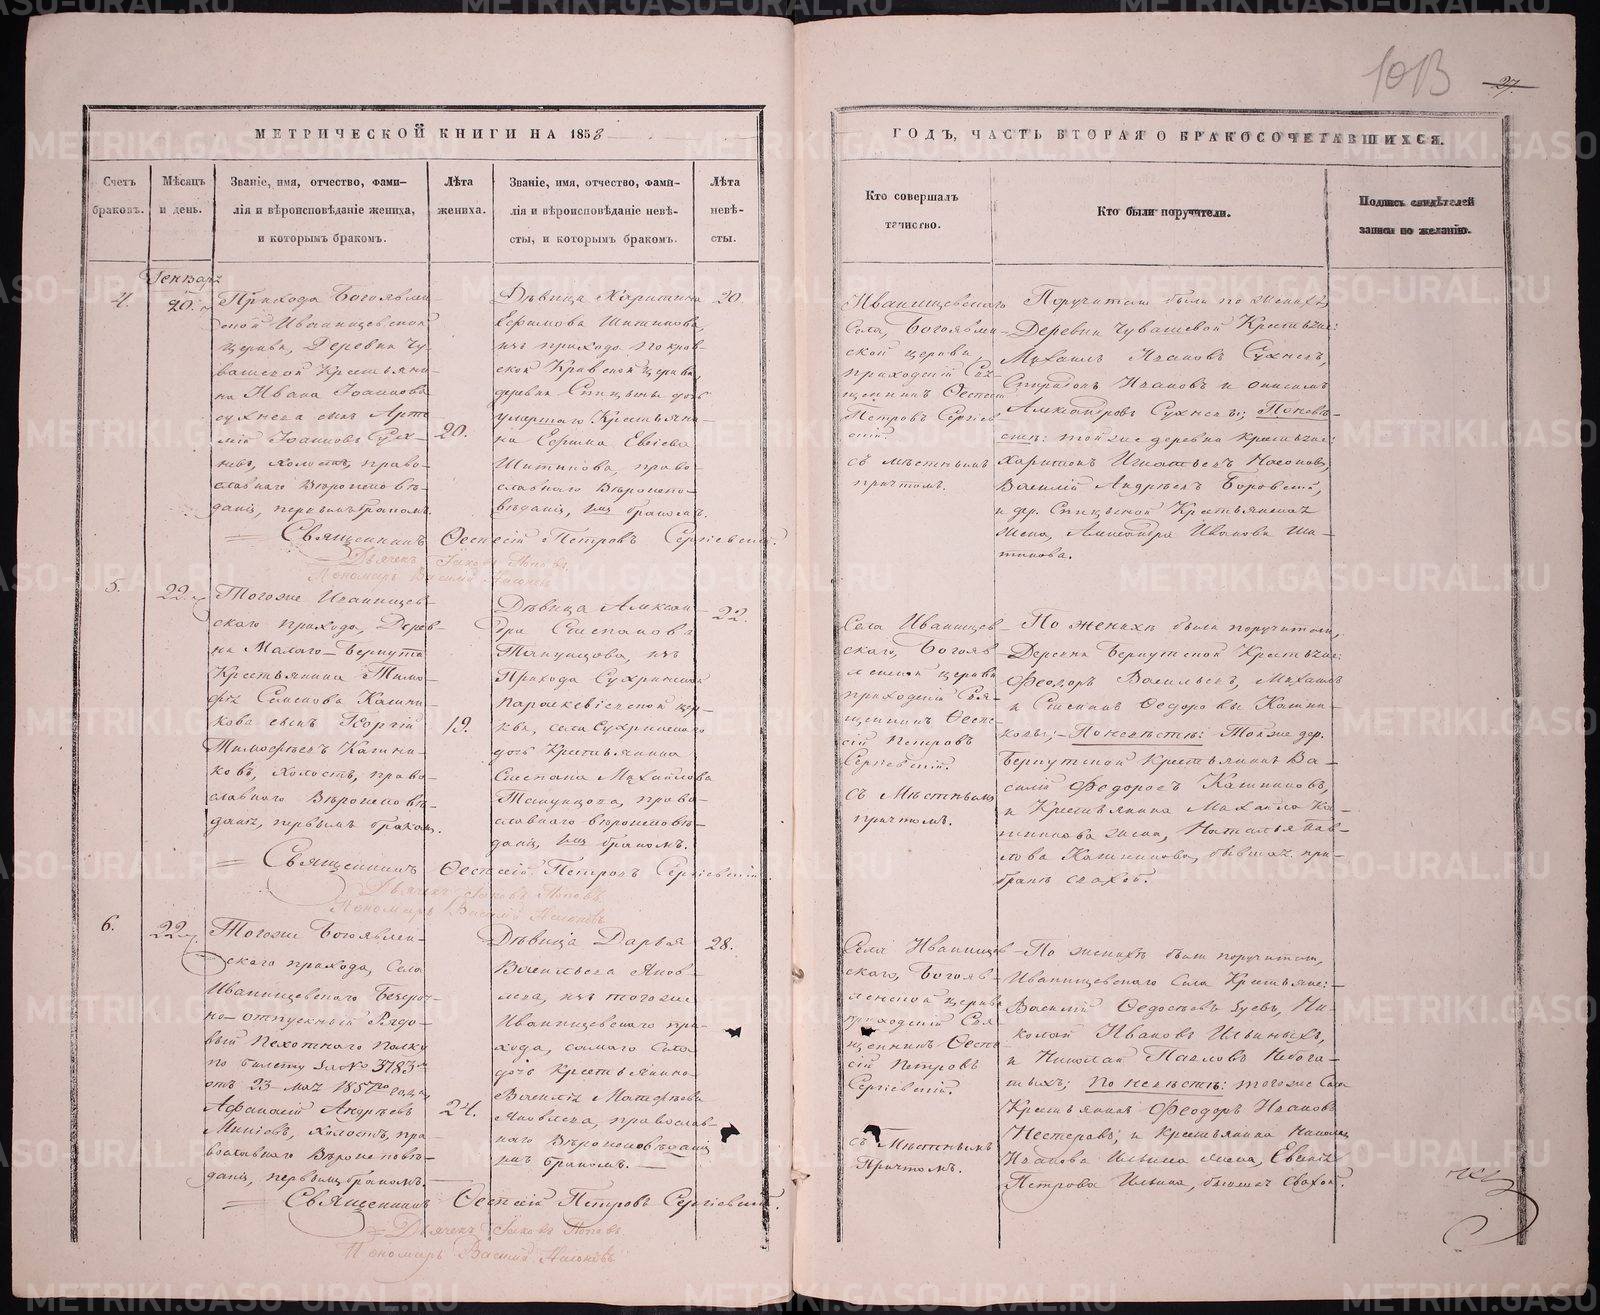 1013
27.
МЕТРИЧЕСКОЙ КНИГИ НА 1858
ГОДЪ, ЧАСТЬ ВТОРАЯ О БРАКОСОЧЕТАВШИХСЯ.
Счетъ
браковъ.
Мѣсяцъ
и день.
Званіе, имя, отчество, фами-
лія и вѣроисповѣданіе жениха,
и которымъ бракомъ.
Лѣта
жениха.
Званіе, имя, отчество, фами-
лія и вѣроисповѣданіе невѣ-
сты, и которымъ бракомъ.
Лѣта
невѣ-
сты.
Кто совершалъ
таинство.
Кто были поручители.
Подпись свидѣтелей
записи по желанію.
4.
Генваря
20.
Прихода Богоявлен-
ской Иванищевской
церкви, Деревни Чу-
вашевой Крестьяни-
на Ивана Іоаннова
сухнева сынъ Арте-
мій Іоанновъ Сух-
невъ, холостъ, право-
славнаго Вѣроисповѣ-
данія, первымъ бракомъ.
20.
Дѣвица Харитина
Ефимова Шитикова,
изъ прихода Покров-
ской церкви,
деревни дочь
умершаго Крестьяни-
на Ефима
Шитикова, право-
славнаго Вѣроиспо-
вѣданія, бракомъ.
20.
Иванищевскаго
Села, Богоявлен-
ской церкви
приходскій Свя-
щенникъ
Петровъ Сергіев-
скій
съ мѣстнымъ
причтомъ.
Поручители были по женихѣ
Деревни Чувашевой Крестьяне:
Михаилъ Ивановъ Сухневъ,
Спиридонъ Ивановъ и
Александровъ Сухневы; По невѣ-
стѣ: той же деревни крестьяне:
Харитонъ Игнатьевъ
Василій Андреевъ Боровскій,
и дер. Крестьянская
жена, Александра Иванова Ши-
тикова.
Священникъ Петровъ Сергіевскій.
Дьячекъ Яковъ Поповъ
Пономарь Василій
5.
22.
Тогоже Иванищев-
скаго прихода, Дерев-
ни Малаго-Бернута
Крестьянина Тимо-
фея Семенова Кашни-
кова сынъ Георгій
Тимофеевъ Кашни-
ковъ, холостъ, право-
славнаго Вѣроисповѣ-
данія, первымъ бракомъ.
19.
Дѣвица Алексан-
дра Степанова
изъ
Прихода Сухринской
Параскевіевской цер-
кви, села Сухринскаго
дочь Крестьянина
Степана Михайлова
право-
славнаго вѣроисповѣ-
данія, бракомъ.
22.
Села Иванищев-
скаго, Богояв-
ленской церкви
приходскій Свя-
щенникъ
Петровъ
Сергіевскій.
съ Мѣстнымъ
причтомъ.
По женихѣ были поручители,
Деревни Бернутской Крестьяне:
Феодоръ Васильевъ, Михаилъ
и Степанъ Федоровы Кашни-
ковы; По невѣстѣ: Тойже дер.
Бернутской Крестьянинъ Ва-
силій Федоровъ Кашниковъ,
и Крестьянина Михаила Ка-
шникова жена, Наталья Пав-
лова Кашникова, бывшая при
бракѣ свахой.
Священникъ Петровъ Сергіевскій.
Дьячекъ Яковъ Поповъ
Пономарь Василій
6.
22.
Тогоже Богоявлен-
скаго прихода, Села
Иванищевскаго Безсроч-
но-отпускный Рядо-
вый Пехотнаго Полку
по билету за № 3783
отъ 23 мая 1857го года
Афанасій Андреевъ
холостъ, пра-
вославнаго Вѣроисповѣ-
данія, первымъ бракомъ.
24.
Дѣвица Дарья
Васильева Яков-
лева, изъ тогоже
Иванищевскаго при-
хода, самаго Села
дочь Крестьянина
Василія Матфеева
Яковлева, православ-
наго Вѣроисповѣданія
бракомъ.
28.
Села Иванищев-
скаго, Богояв-
ленской церкви
приходскій Свя-
щенникъ
Петровъ
Сергіевскій.
съ Мѣстнымъ
Причтомъ.
По женихѣ были поручители,
Иванищевскаго Села Крестьяне:
Василій Федосѣевъ Зуевъ, Ни-
колай Ивановъ Ильиныхъ,
и Николай Павловъ Небога-
тыхъ; По невѣстѣ: тогоже Села
Крестьянинъ Феодоръ Ивановъ
Нестеровъ; и Крестьянина Николая
Иванова Ильина жена, Евгенія
Петрова Ильина, бывшая Свахой.
Священникъ Петровъ Сергіевскій.
Дьячекъ Яковъ Поповъ
Пономарь Василій
METRIKI.GASO-URAL.RU